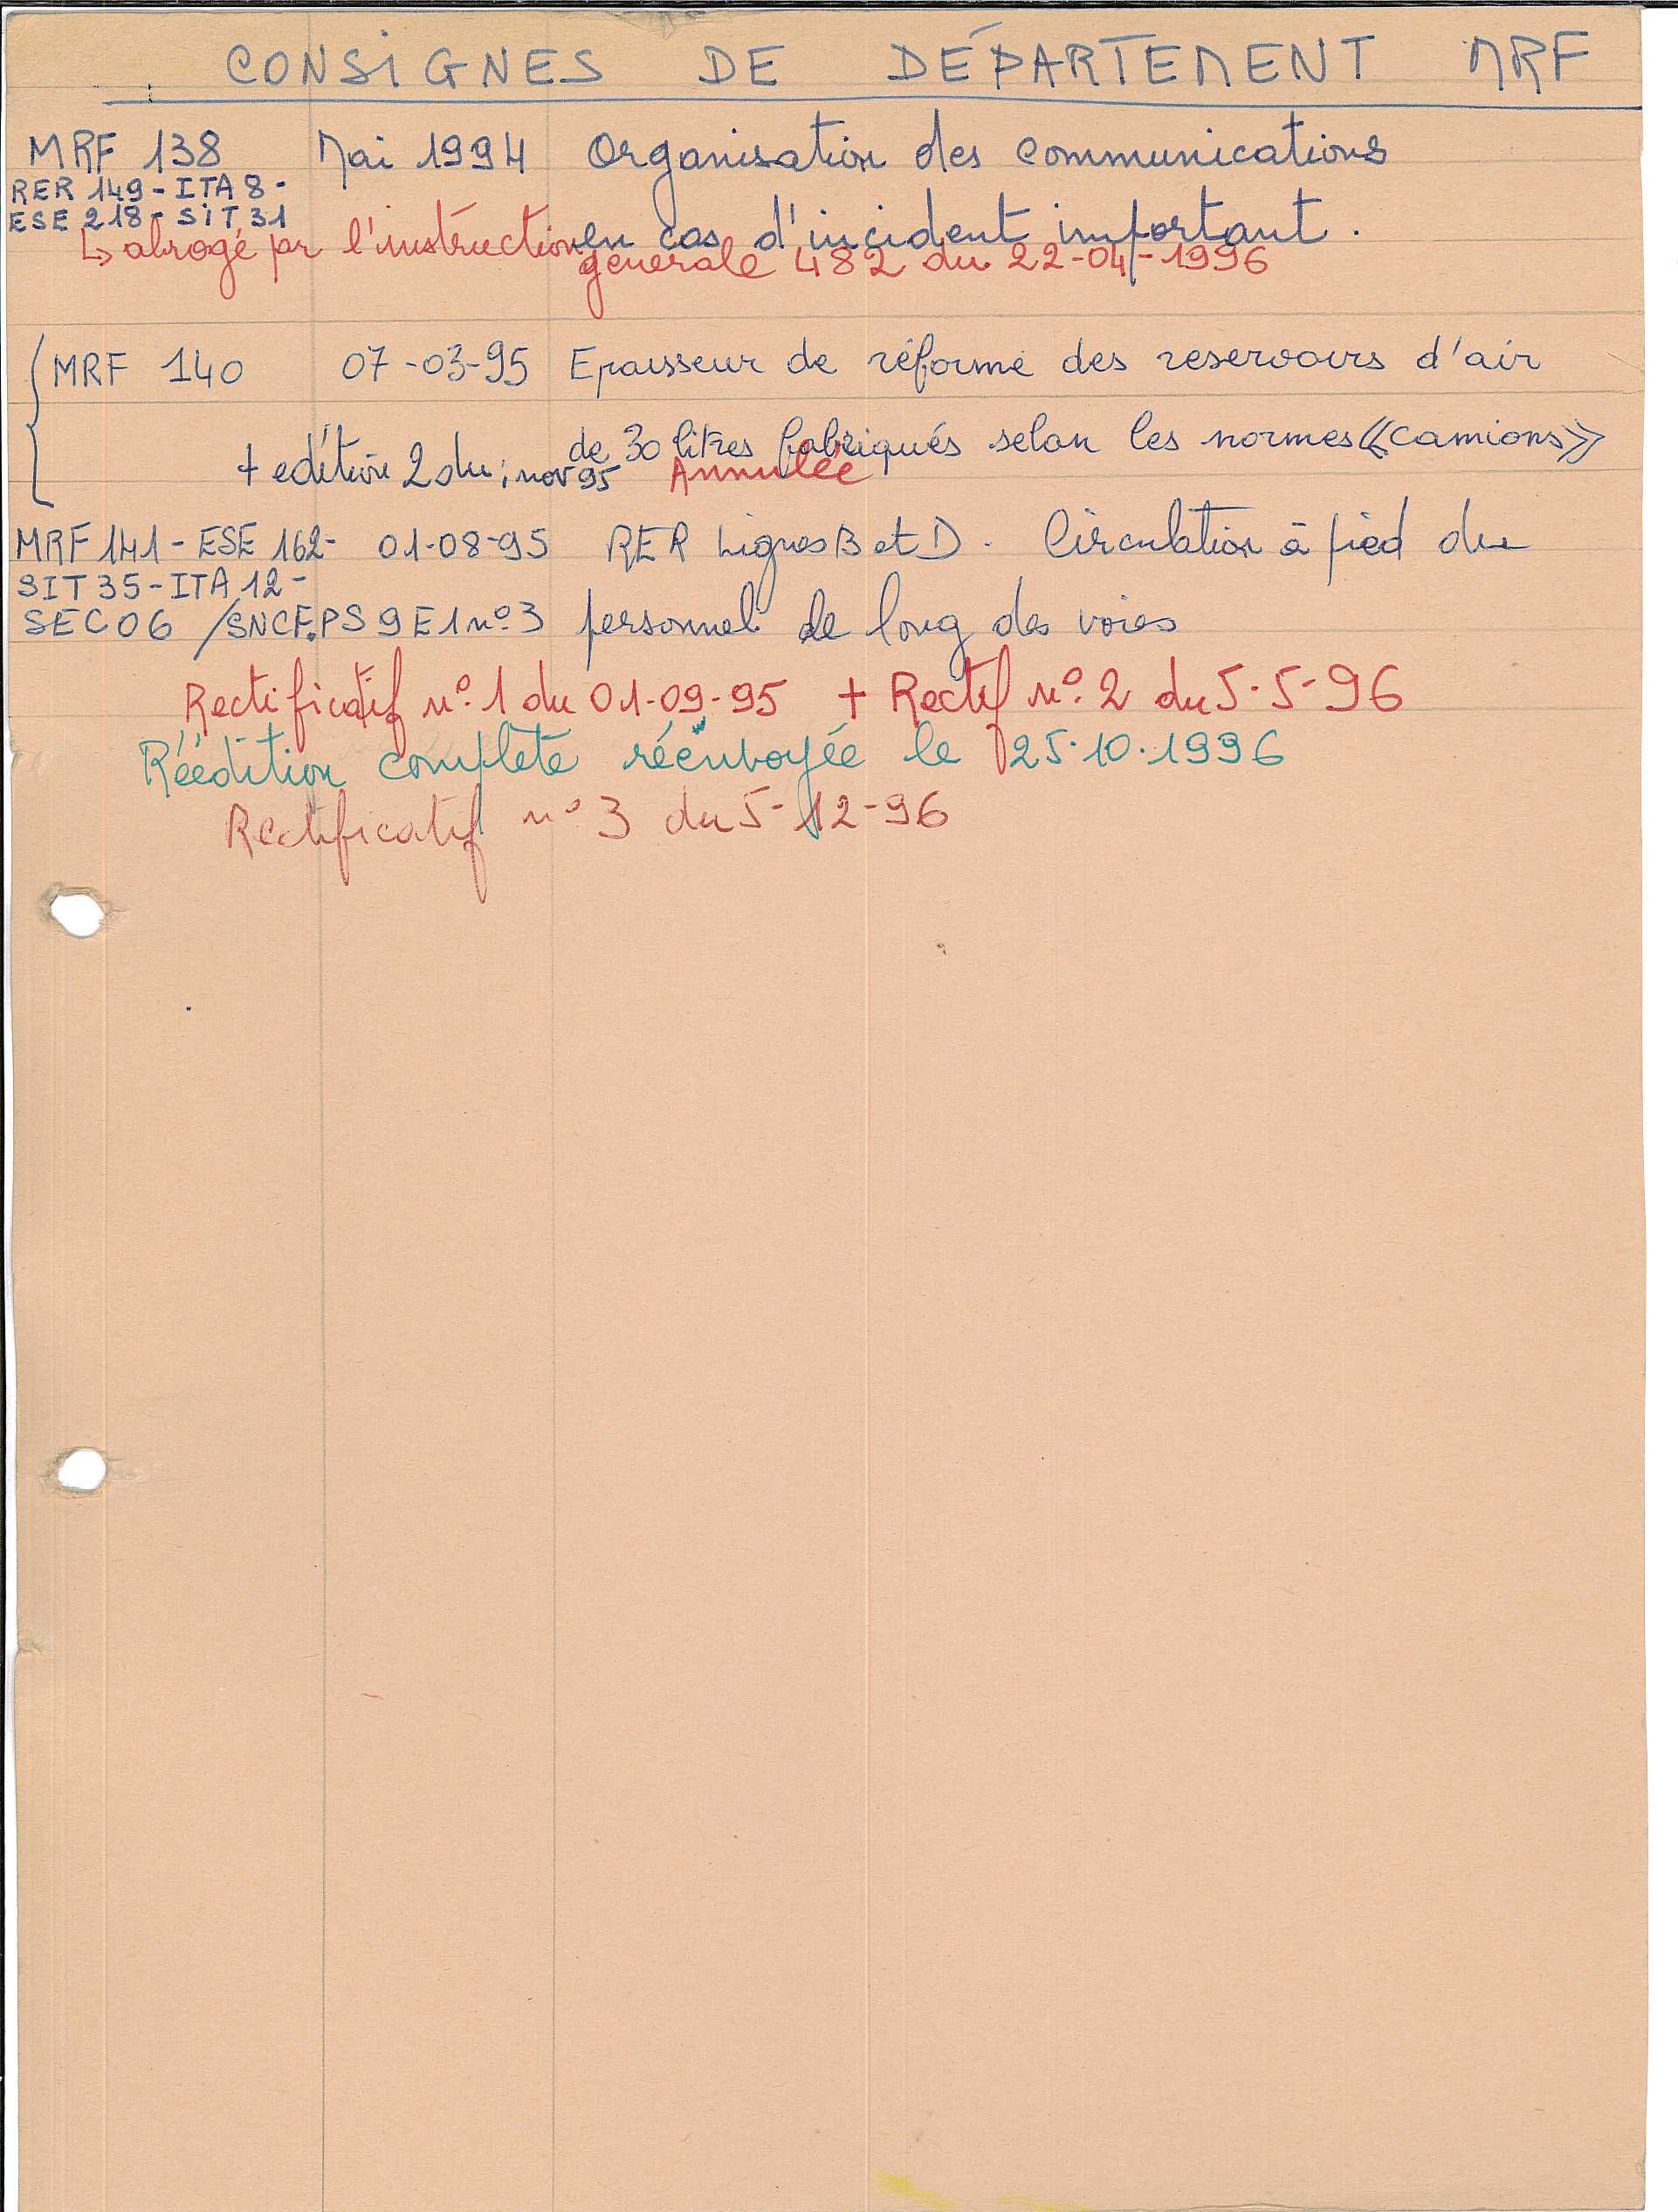 CONSIGNES DE DÉPARTEMENT MRF
MRF 138 Mai 1994 Organisation des communications
RER 149 - ITA 8 -
ESE 218 - SIT 31
en cas d'incident important.
↳ abrogé par l'instruction
générale 482 du 22-04-1996
MRF 140 07-03-95 Epaisseur de réforme des reservoirs d'air
de 30 litres fabriqués selon les normes «camions»
+ edition 2 du : nov 95 Annulée
MRF 141 - ESE 162 - 01-08-95 RER Lignes B et D. Circulation à pied du
SIT 35 - ITA 12 -
SEC 06 / SNCF.PS 9 E1 n°3 personnel le long des voies
Rectificatif n°1 du 01-09-95 + Rectif n°2 du 5-5-96
Réédition complète réenvoyée le 25.10.1996
Rectificatif n°3 du 5-12-96